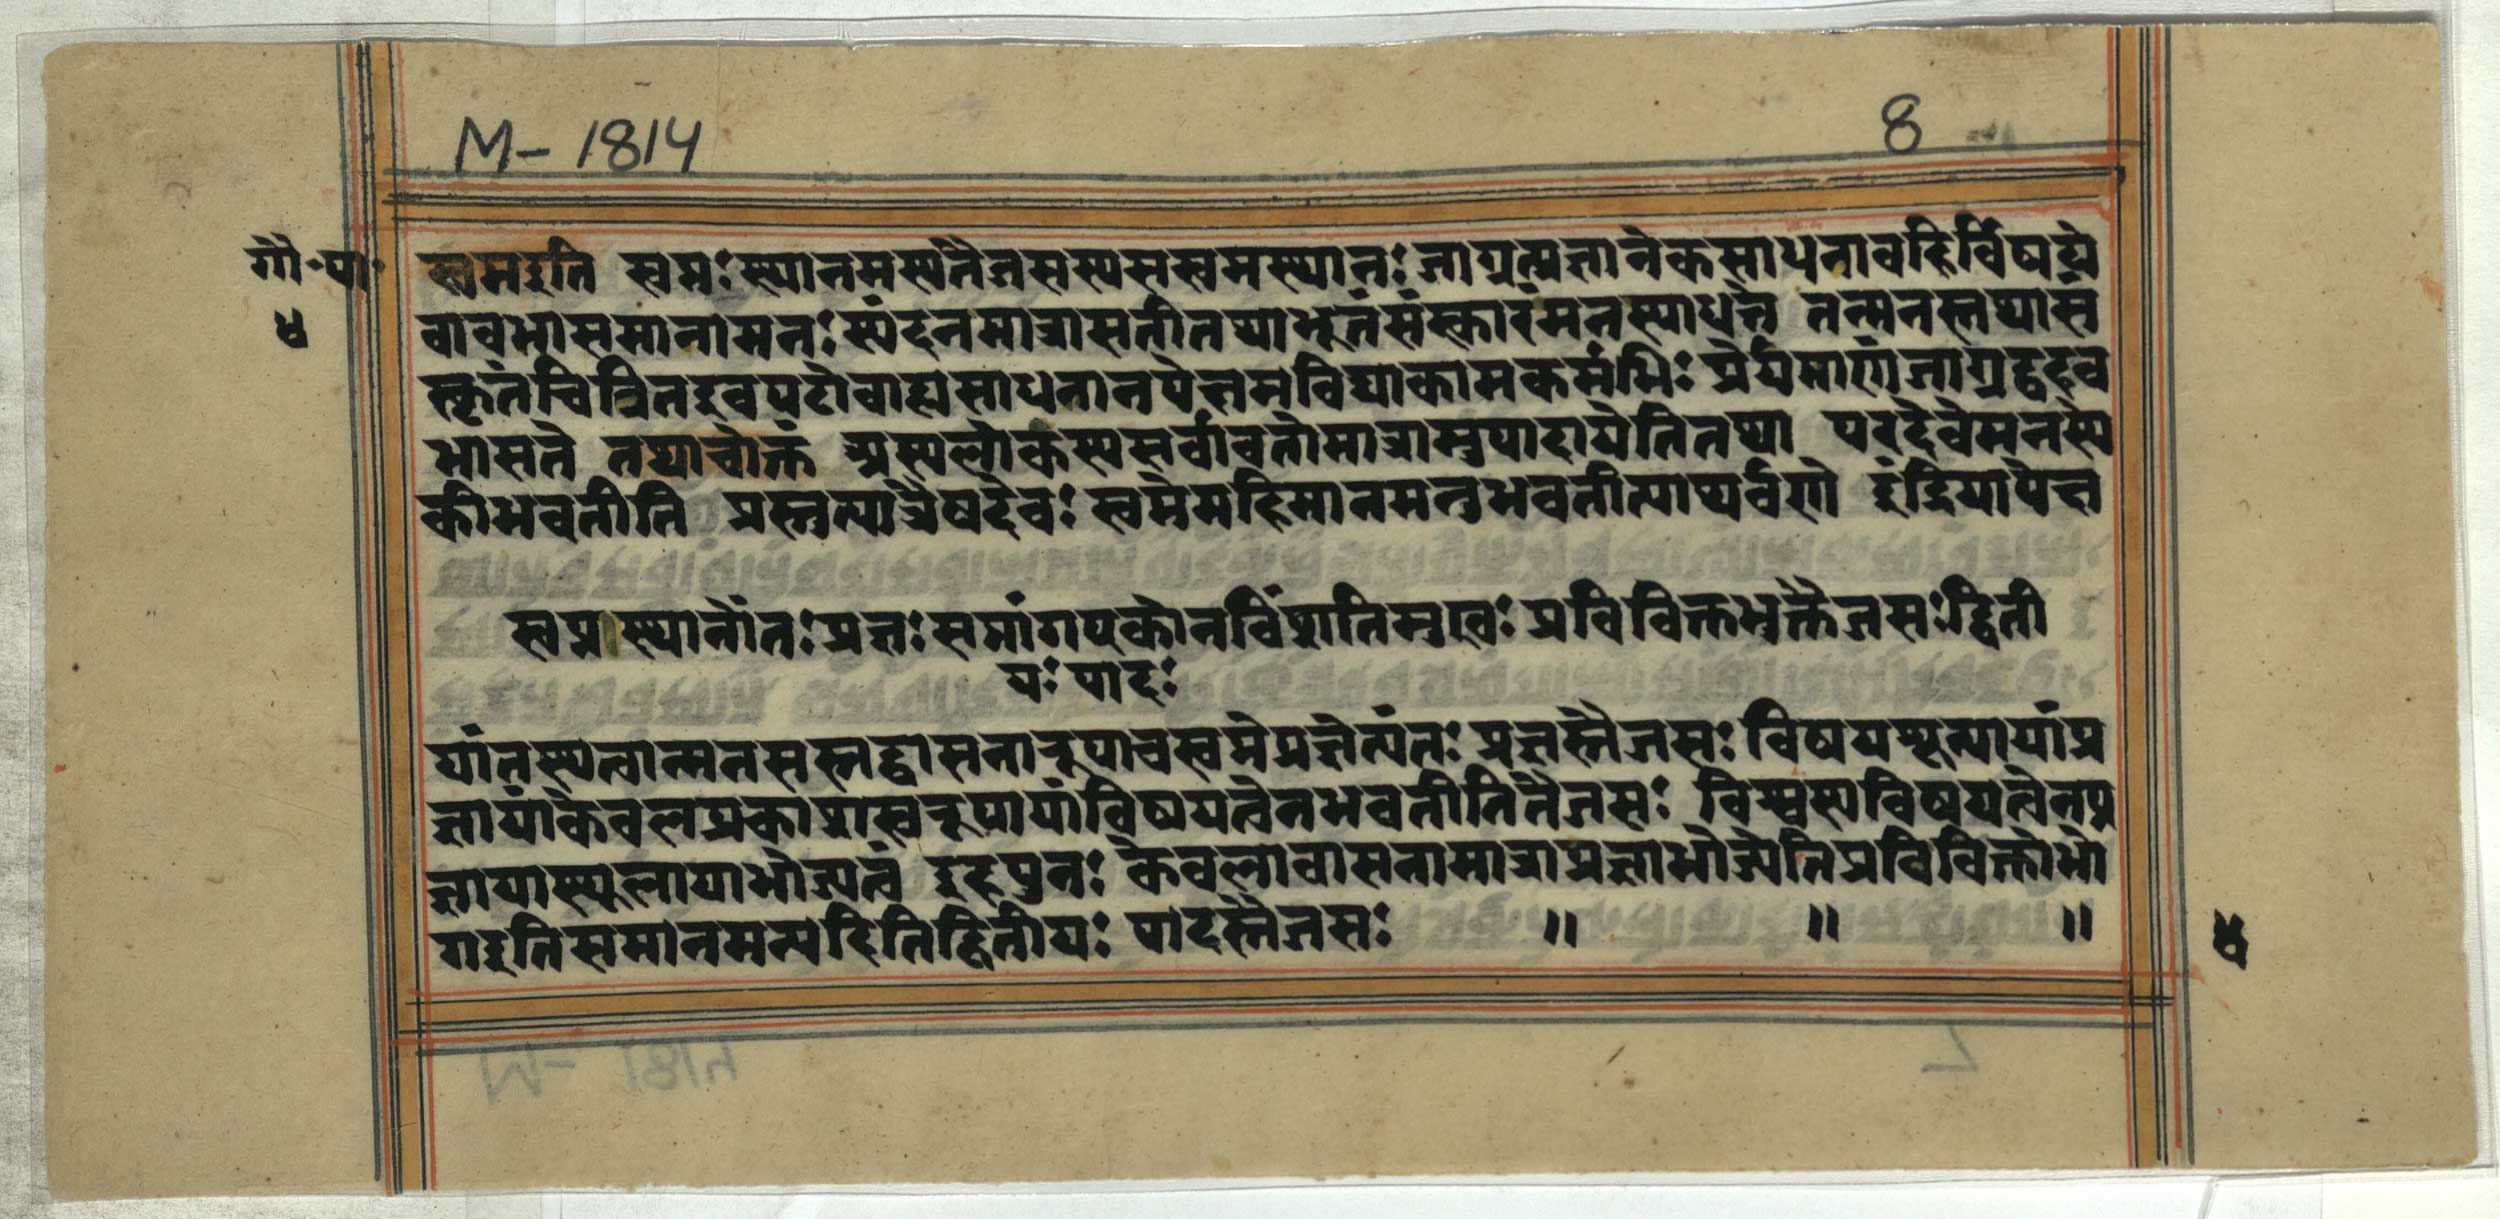 M-1814
8
गौ॰पा॰
४
स्वप्नइति स्वप्नः स्थानमस्यतैजसस्यसस्वप्नस्थानः जाग्रत्प्रज्ञानेकसाधनाबहिर्विषये
वावभासमानामनः स्पंदनमात्रासतीतथाभूतंसंस्कारंमनस्याधत्ते तन्मनस्तथासं
स्कृतंचित्रितइवपटोबाह्यसाधनानपेक्षमविद्याकामकर्मभिः प्रेर्यमाणंजाग्रद्वदव
भासते तथाचोक्तं अस्यलोकस्यसर्वावतोमात्रामुपादायेतितथा परेदेवेमनस्ये
कीभवतीति प्रस्तुत्यात्रैषदेवः स्वप्नेमहिमानमनुभवतीत्याथर्वणे इंद्रियापेक्ष
स्वप्नस्थानोंतःप्रज्ञः सप्तांगएकोनविंशतिमुखः प्रविविक्तभुक्तैजसःद्विती
यः पादः
यांतस्थत्वान्मनसस्तद्वासनारूपाचस्वप्नेप्रज्ञेत्यंतः प्रज्ञस्तैजसः विषयशून्यायांप्र
ज्ञायांकेवलप्रकाशस्वरूपायांविषयत्वेनभवतीतितैजसः विश्वस्यविषयत्वेनप्र
ज्ञायास्थूलायाभोज्यत्वं इहपुनः केवलावासनामात्राप्रज्ञाभोज्येतिप्रविविक्तोभो
गइतिसमानमन्यदितिद्वितीयः पादस्तैजसः ॥ ॥ ॥
४